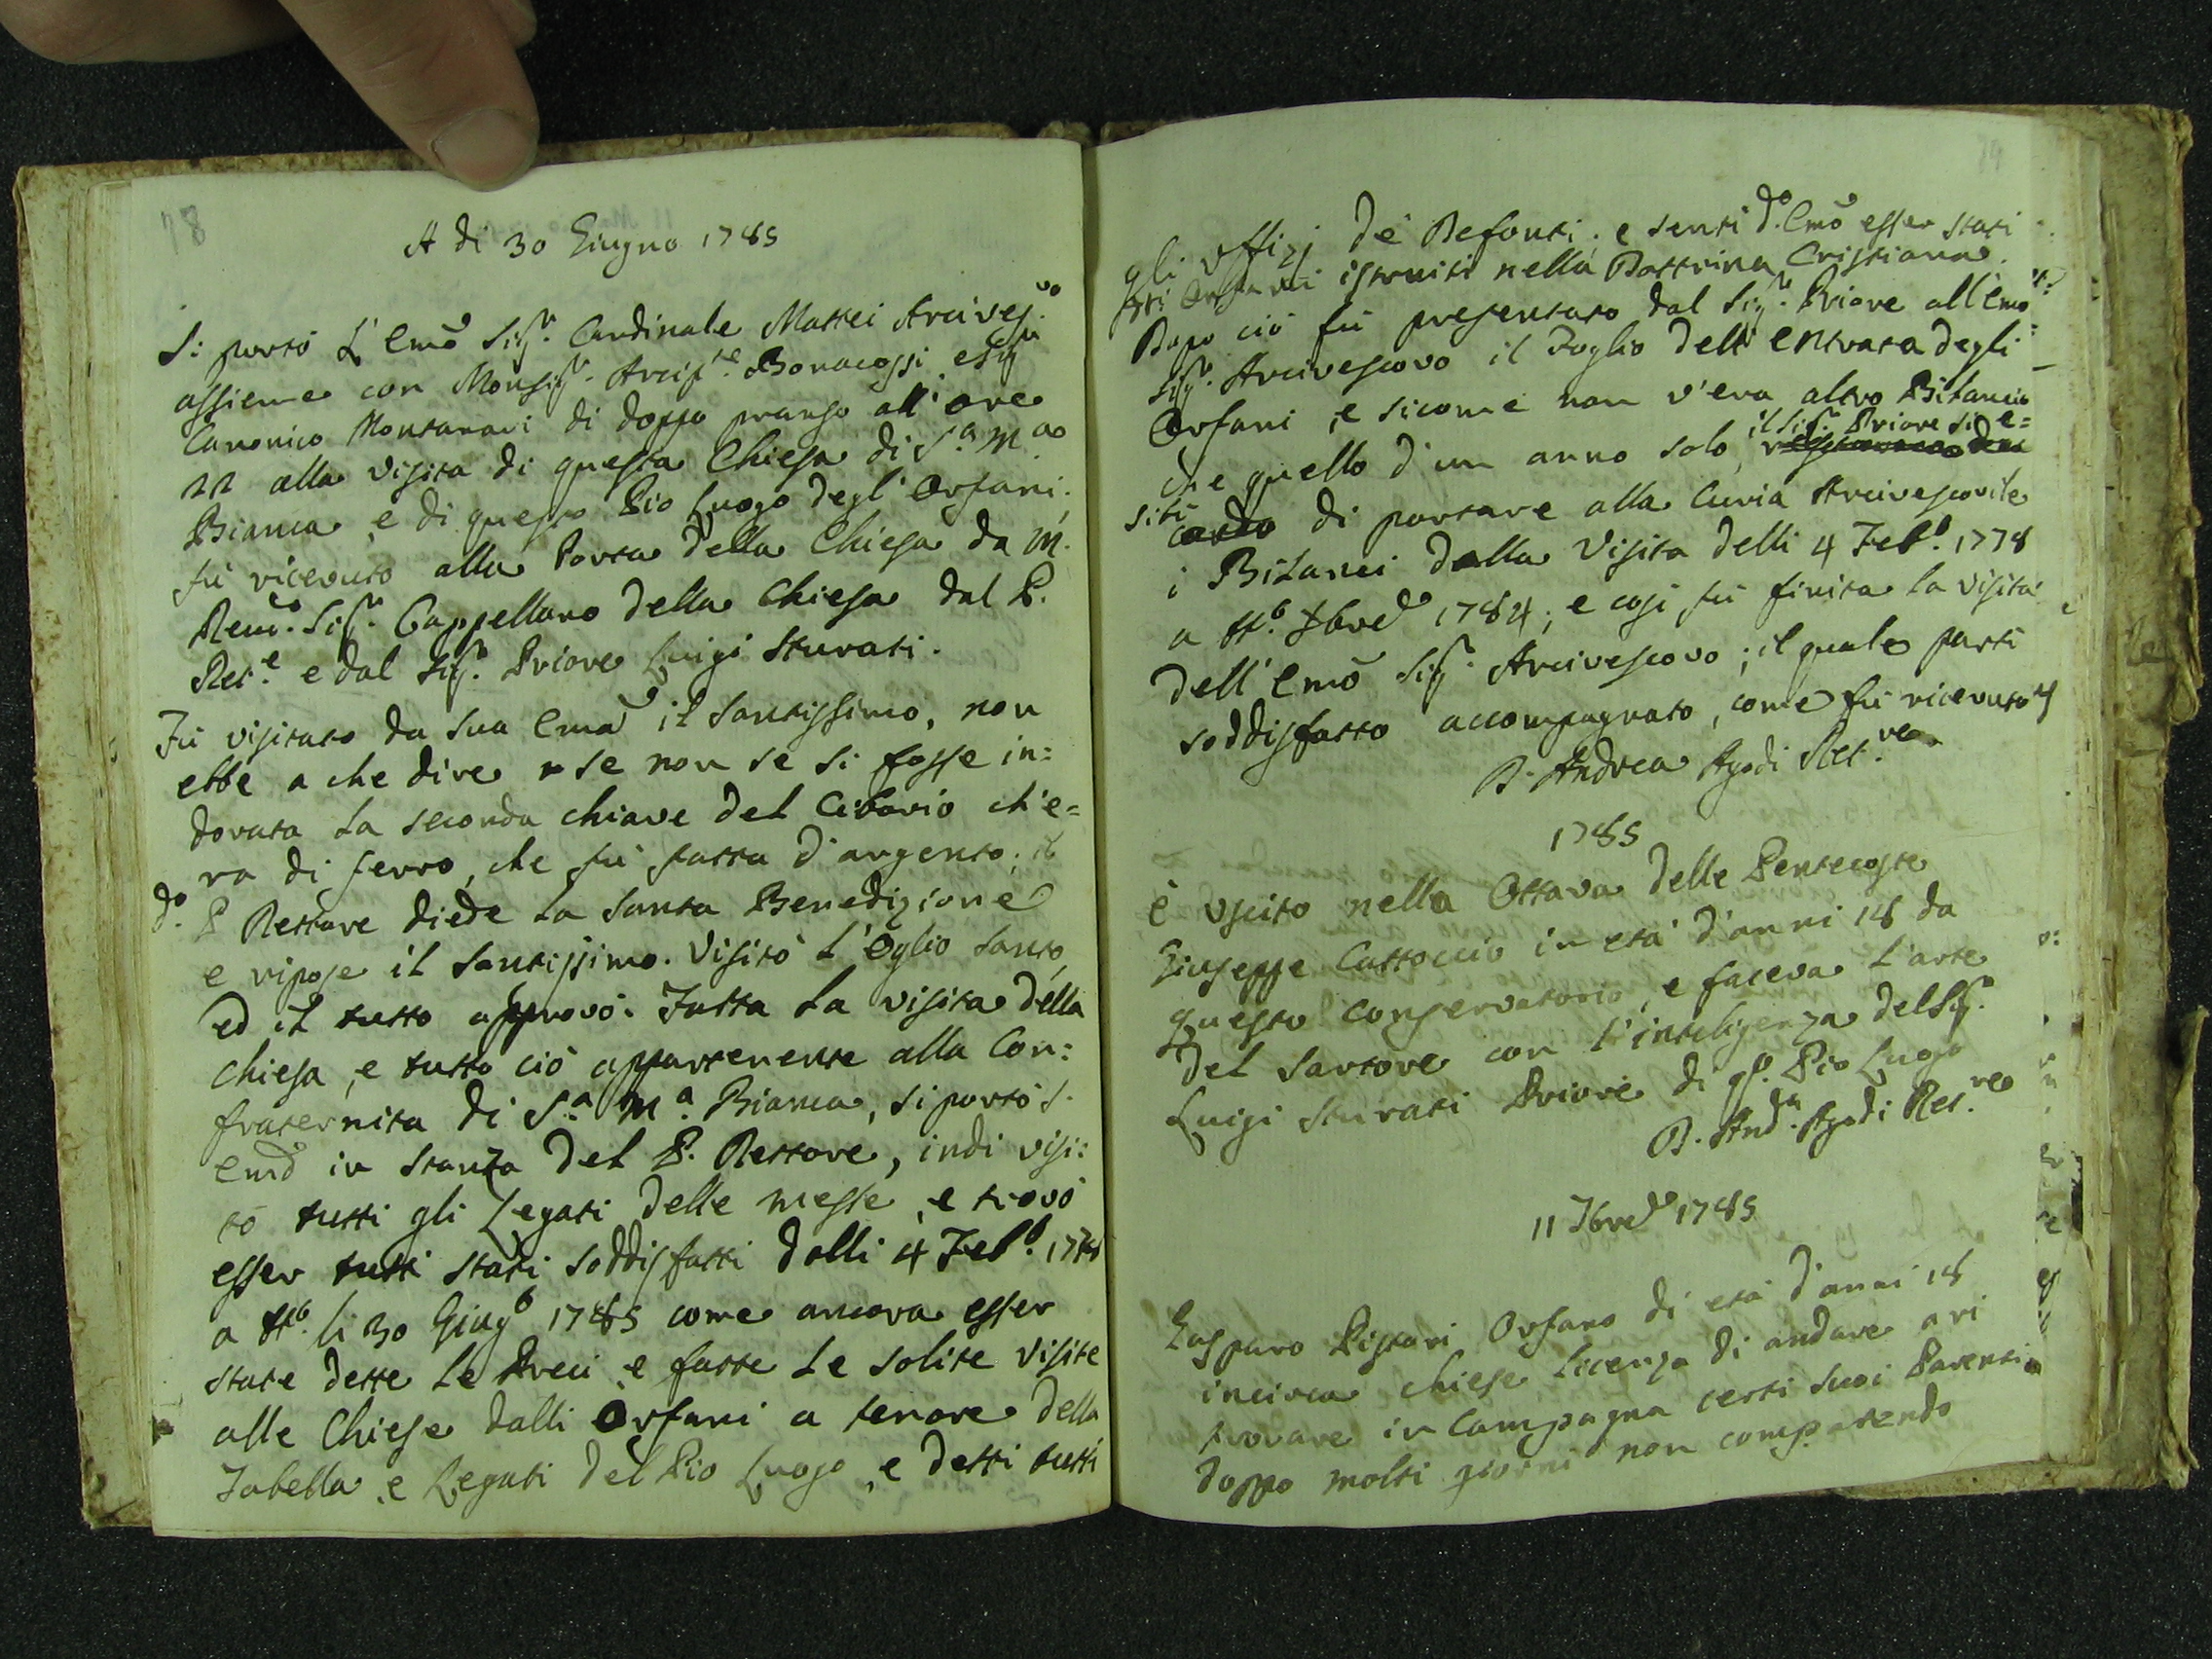 78
A di 30 Giugno 1785
Si portò L'Emo Sig.r Cardinale Mattei Arcives.vo
assieme con Monsig.r Arcip.te Bonacossi, e Sig.r
Canonico Montanari di doppo pranso all'ore
22 alla visita di questa Chiesa di S.a M.a
Bianca, e di questo Pio Luogo degl'Orfani;
fù ricevuto alla Porta della Chiesa da M.
Sig.r Cappellano della Chiesa dal P.
Ret.e e dal Sig.r Priore Luigi Sturati.
Fù visitato da Sua Ema il Santissimo, non
ebbe a che dire se non se si fosse in=
dorata la seconda chiave del Ciborio ch'e=
ra di ferro, che fù fatta d'argento; il
d.o P Rettore diede la Santa Benedizione
e ripose il Santissimo. Visitò L'Oglio Santo,
ed il tutto approvò. Fatta la visita della
Chiesa, e tutto ciò appartenente alla Con:
fraternita di S.a M.a Bianca, si portò S.
Emo in Stanza del P. Rettore, indi visi:
tò tutti gli Legati delle messe, e trovò
esser tutti stati soddisfatti dalli 4 Feb.o 1778
a tt.o li 30 Giug.o 1785 come ancora esser
state dette le Preci, e fatte le solite visite
alle Chiese dalli Orfani a tenore della
Tabella, e Legati del Pio Luogo, e detti tutti
gli Uffizj de Defonti; e sentì d.o Emo esser stati
Orfani istruiti nella Dottrina Cristiana.
Dopo ciò fù presentato dal Sig.r Priore all'Emo
Sig.r Arcivescovo il Foglio dell'Entrata degli
Orfani, e sicome non v'era altro Bilancio
che quello d'un anno solo, il Sig.r Priore si e=
sibì di portare alla Curia Arcivescovile
i Bilanci dalla Visita delli 4 Feb.o 1778
a tt.o Xbre 1784; e così fù finita la visita
dell'Emo Sig.r Arcivescovo; il quale partì
soddisfatto accompagnato, come fù ricevuto
D. Andrea Agodi Ret.re
1785
è uscito nella Ottava delle Pentecoste
Giuseppe Cattoccio in età d'anni 18 da
questo Conservatorio, e faceva l'arte
del Sartore con l'inteligenza del Sig.r
Luigi Sturati Priore di q.to Pio Luogo
D. And.a Agodi Ret.re
11 7bre 1785
Gasparo Pistori Orfano di età d'anni 18
incirca chiese licenza di andare a ri
trovare in Campagna certi suoi Parenti
doppo molti giorni non comparendo